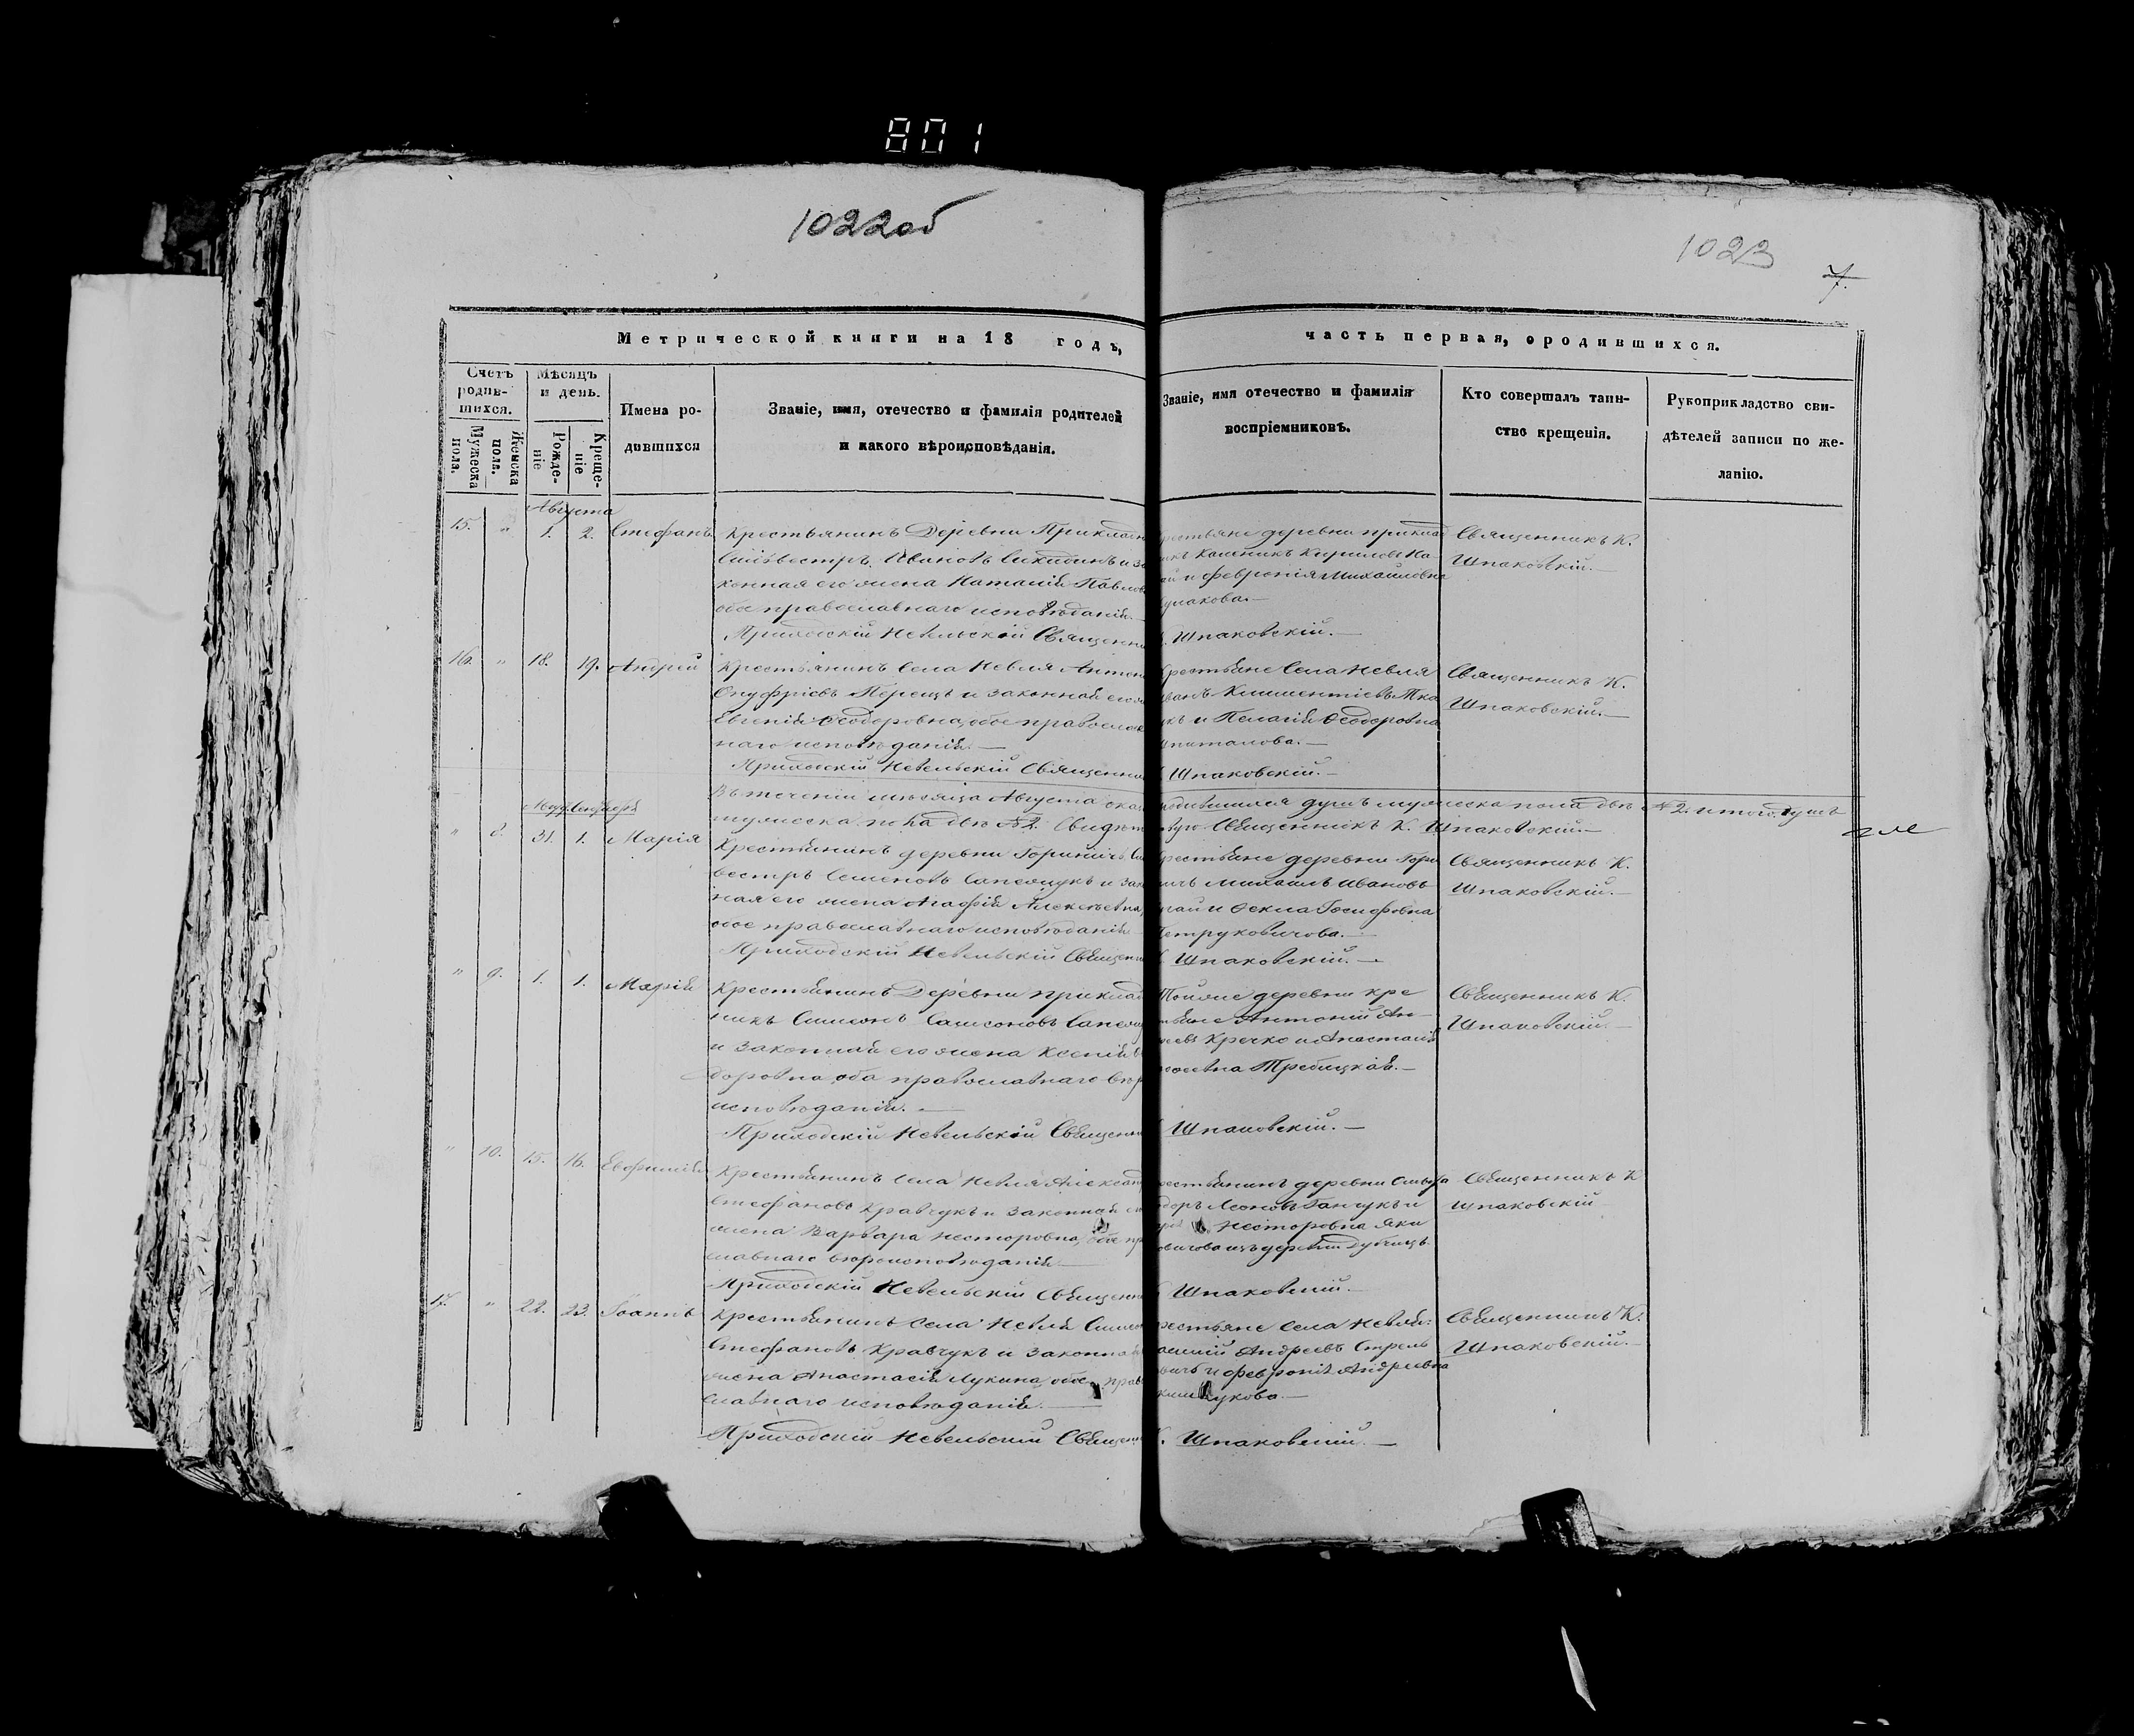 801
1022об
1023
7.
Метрической книги на 18 годъ,
часть первая, о родившихся.
Счетъ родив-шихся.
Мѣсяцъ и день.
Мужеска пола.
Женска пола.
Рожде-ніе
Креще-ніе
Имена ро-
дившихся
Званіе, имя, отечество и фамилія родителей
и какого вѣроисповѣданія.
Званіе, имя отечество и фамилія
воспріемниковъ.
Кто совершалъ таин-
ство крещенія.
Рукоприкладство сви-
дѣтелей записи по же-
ланію.
Августа
15. " 1. 2. Стефанъ
Крестьянинъ Деревни Прикладн
Сильвестръ Ивановъ и за
конная его жена Наталія Павлов
обое православнаго исповѣданія.
Приходскій Невельскій Священни
рестьяне деревни приклад
Кириловъ
и Февронія Михайловна
Шпаковскій.
Священникъ К.
Шпаковскій.
16. " 18. 19. Андрей
Крестьянинъ Села Невля Антон
Онуфріевъ и законная его
Евгенія Ѳеодоровна, обое православ
наго исповѣданія.
Приходскій Невельскій Священни
рестьяне Села Невля
ванъ Климентіевъ Тка
къ и Пелагія Ѳеодоровна
Шпаковскій.
Священникъ К.
Шпаковскій.
Въ теченіи мѣсяца Августа
родившихся душъ мужеска пола двѣ №2. итого душъ
мужеска пола двѣ №2. Свидѣт
Священникъ К. Шпаковскій.
" 8. 31. 1. Марія
Крестьянинъ деревни Горничъ Си
вестръ Семеновъ Сапежукъ и зак
ная его жена Агафія Алексѣевна,
обое православнаго исповѣданія
Приходскій Невельскій Священн
рестьяне деревни Горн
ичъ Михаилъ Ивановъ
и Ѳекла Іосифовна
Петруковичова.
Шпаковскій.
Священникъ К.
Шпаковскій.
" 9. 1. 1. Марія
Крестьянинъ Деревни приклад
никъ Симеонъ Самсоновъ Сапеж
и законная его жена Ксенія Ѳ
доровна, оба православнаго вѣр
исповѣданія.
Приходскій Невельскій Священн
Тойже деревни кре
стьяне Антоній Ан
Кречко и Анастасія
Требицкая.
Шпаковскій.
Священникъ К.
Шпаковскій.
" 10. 15. 16. Евфимія
Крестьянинъ Села Невля Александ
Стефановъ Кравчукъ и законная
жена Варвара Несторовна, обое пр
славнаго вѣроисповѣданія
Приходскій Невельскій Священн
рестьянинъ деревни
доръ Леоновъ Ганчукъ и
Несторовна Яки
овичова изъ деревни Дубчицъ
Шпаковскій.
Священникъ К
Шпаковскій
17. " 22. 23. Іоаннъ
Крестьянинъ Села Невля Симео
Стефановъ Кравчукъ и законная
жена Анастасія Лукина, обое прав
славнаго исповѣданія.
Приходскій Невельскій Священн
рестьяне Села Невля:
Андреевъ Стрель
вичъ и Февронія Андреевна
Шпаковскій.
Священникъ К.
Шпаковскій.